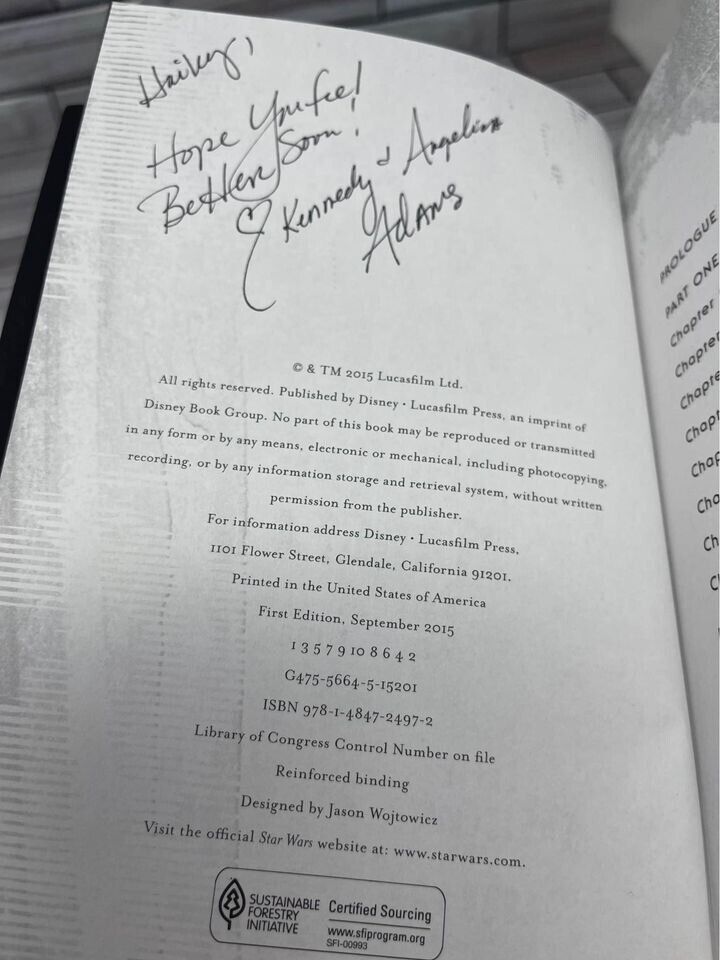 Hailey,
Hope You feel
Better Soon!
♡ Kennedy & Angelina
Adams
© & TM 2015 Lucasfilm Ltd.
All rights reserved. Published by Disney • Lucasfilm Press, an imprint of
Disney Book Group. No part of this book may be reproduced or transmitted
in any form or by any means, electronic or mechanical, including photocopying,
recording, or by any information storage and retrieval system, without written
permission from the publisher.
For information address Disney • Lucasfilm Press,
1101 Flower Street, Glendale, California 91201.
Printed in the United States of America
First Edition, September 2015
1 3 5 7 9 10 8 6 4 2
G475-5664-5-15201
ISBN 978-1-4847-2497-2
Library of Congress Control Number on file
Reinforced binding
Designed by Jason Wojtowicz
Visit the official Star Wars website at: www.starwars.com.
SUSTAINABLE
FORESTRY
INITIATIVE
Certified Sourcing
www.sfiprogram.org
SFI-00993
PROLOGUE
PART ONE
Chapter
Chapter
Chapte
Chapt
Chap
Cha
Ch
C